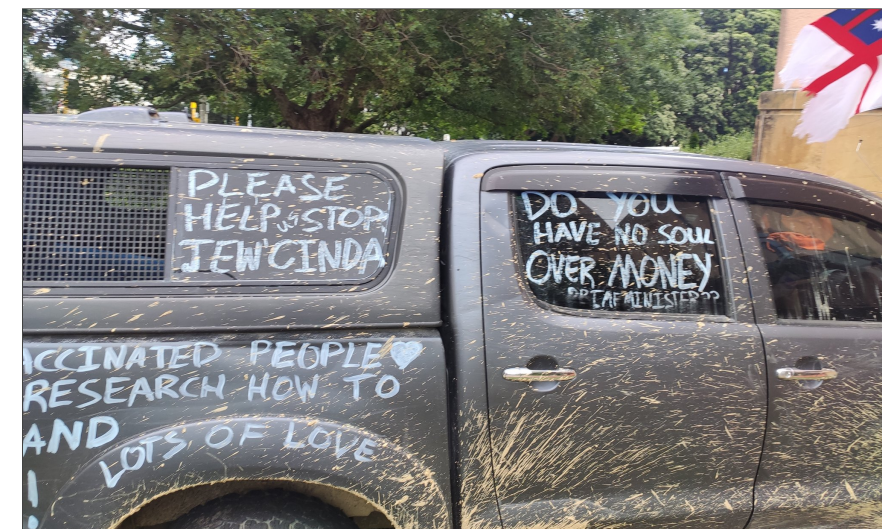 PLEASE
HELP us STOP
JEW'CINDA
DO YOU
HAVE NO SOUL
OVER MONEY
PRIMEMINISTER??
ACCINATED PEOPLE♥
RESEARCH HOW TO
AND
LOTS OF LOVE
!